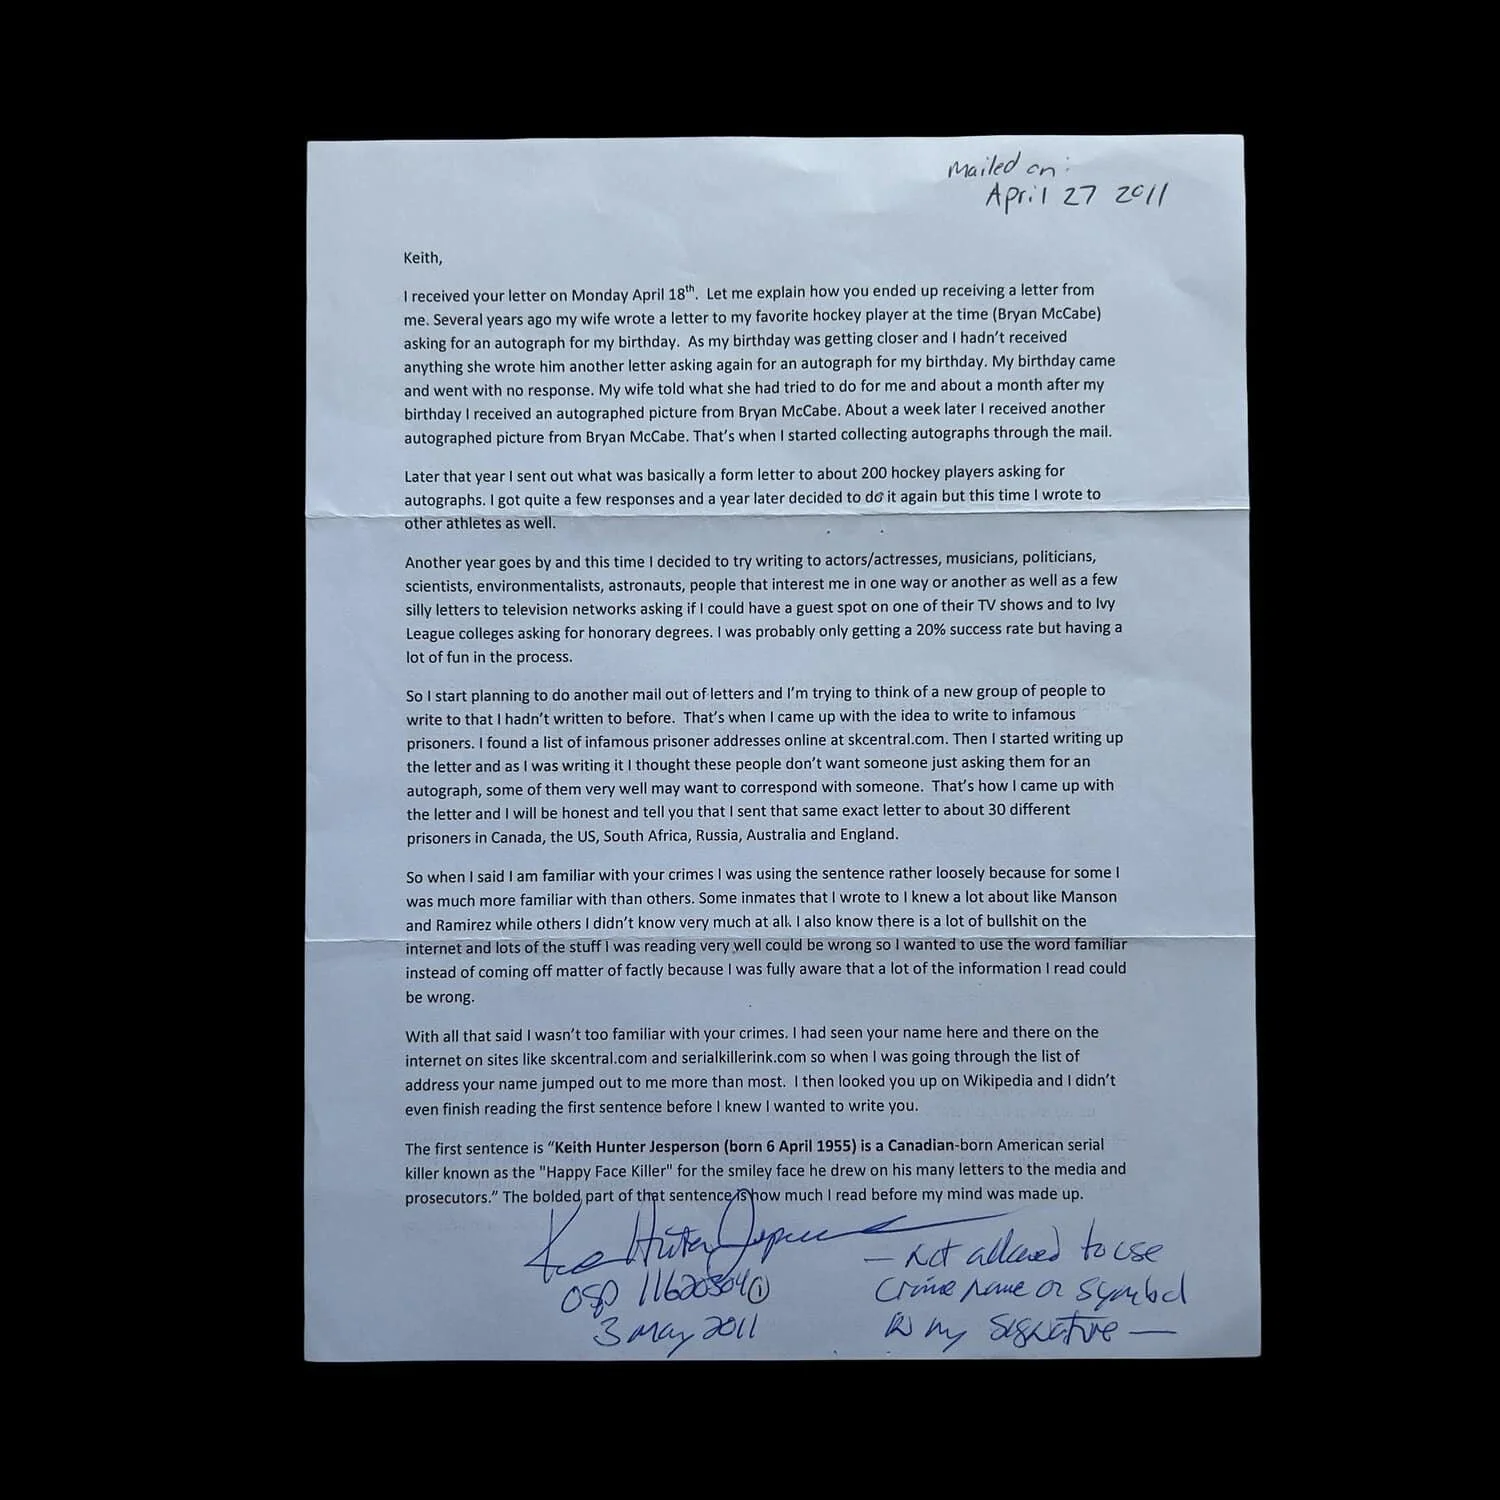 Mailed on:
April 27 2011
Keith,
I received your letter on Monday April 18th. Let me explain how you ended up receiving a letter from
me. Several years ago my wife wrote a letter to my favorite hockey player at the time (Bryan McCabe)
asking for an autograph for my birthday. As my birthday was getting closer and I hadn't received
anything she wrote him another letter asking again for an autograph for my birthday. My birthday came
and went with no response. My wife told what she had tried to do for me and about a month after my
birthday I received an autographed picture from Bryan McCabe. About a week later I received another
autographed picture from Bryan McCabe. That's when I started collecting autographs through the mail.
Later that year I sent out what was basically a form letter to about 200 hockey players asking for
autographs. I got quite a few responses and a year later decided to do it again but this time I wrote to
other athletes as well.
Another year goes by and this time I decided to try writing to actors/actresses, musicians, politicians,
scientists, environmentalists, astronauts, people that interest me in one way or another as well as a few
silly letters to television networks asking if I could have a guest spot on one of their TV shows and to Ivy
League colleges asking for honorary degrees. I was probably only getting a 20% success rate but having a
lot of fun in the process.
So I start planning to do another mail out of letters and I'm trying to think of a new group of people to
write to that I hadn't written to before. That's when I came up with the idea to write to infamous
prisoners. I found a list of infamous prisoner addresses online at skcentral.com. Then I started writing up
the letter and as I was writing it I thought these people don't want someone just asking them for an
autograph, some of them very well may want to correspond with someone. That's how I came up with
the letter and I will be honest and tell you that I sent that same exact letter to about 30 different
prisoners in Canada, the US, South Africa, Russia, Australia and England.
So when I said I am familiar with your crimes I was using the sentence rather loosely because for some I
was much more familiar with than others. Some inmates that I wrote to I knew a lot about like Manson
and Ramirez while others I didn't know very much at all. I also know there is a lot of bullshit on the
internet and lots of the stuff I was reading very well could be wrong so I wanted to use the word familiar
instead of coming off matter of factly because I was fully aware that a lot of the information I read could
be wrong.
With all that said I wasn't too familiar with your crimes. I had seen your name here and there on the
internet on sites like skcentral.com and serialkillerink.com so when I was going through the list of
address your name jumped out to me more than most. I then looked you up on Wikipedia and I didn't
even finish reading the first sentence before I knew I wanted to write you.
The first sentence is "Keith Hunter Jesperson (born 6 April 1955) is a Canadian-born American serial
killer known as the "Happy Face Killer" for the smiley face he drew on his many letters to the media and
prosecutors." The bolded part of that sentence is how much I read before my mind was made up.
Keith Hunter Jesperson
OSP 11620304 1
3 May 2011
— Not allowed to use
crime name or symbol
in my signature —